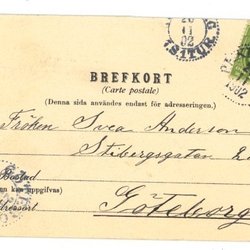 20
11
02
1.8.1TUR.
BREFKORT
(Carte postale)
(Denna sida användes endast för adresseringen.)
Fröken Svea Anderson
Stibergsgatan
Bostad
kan uppgifvas)
Göteborg
1902